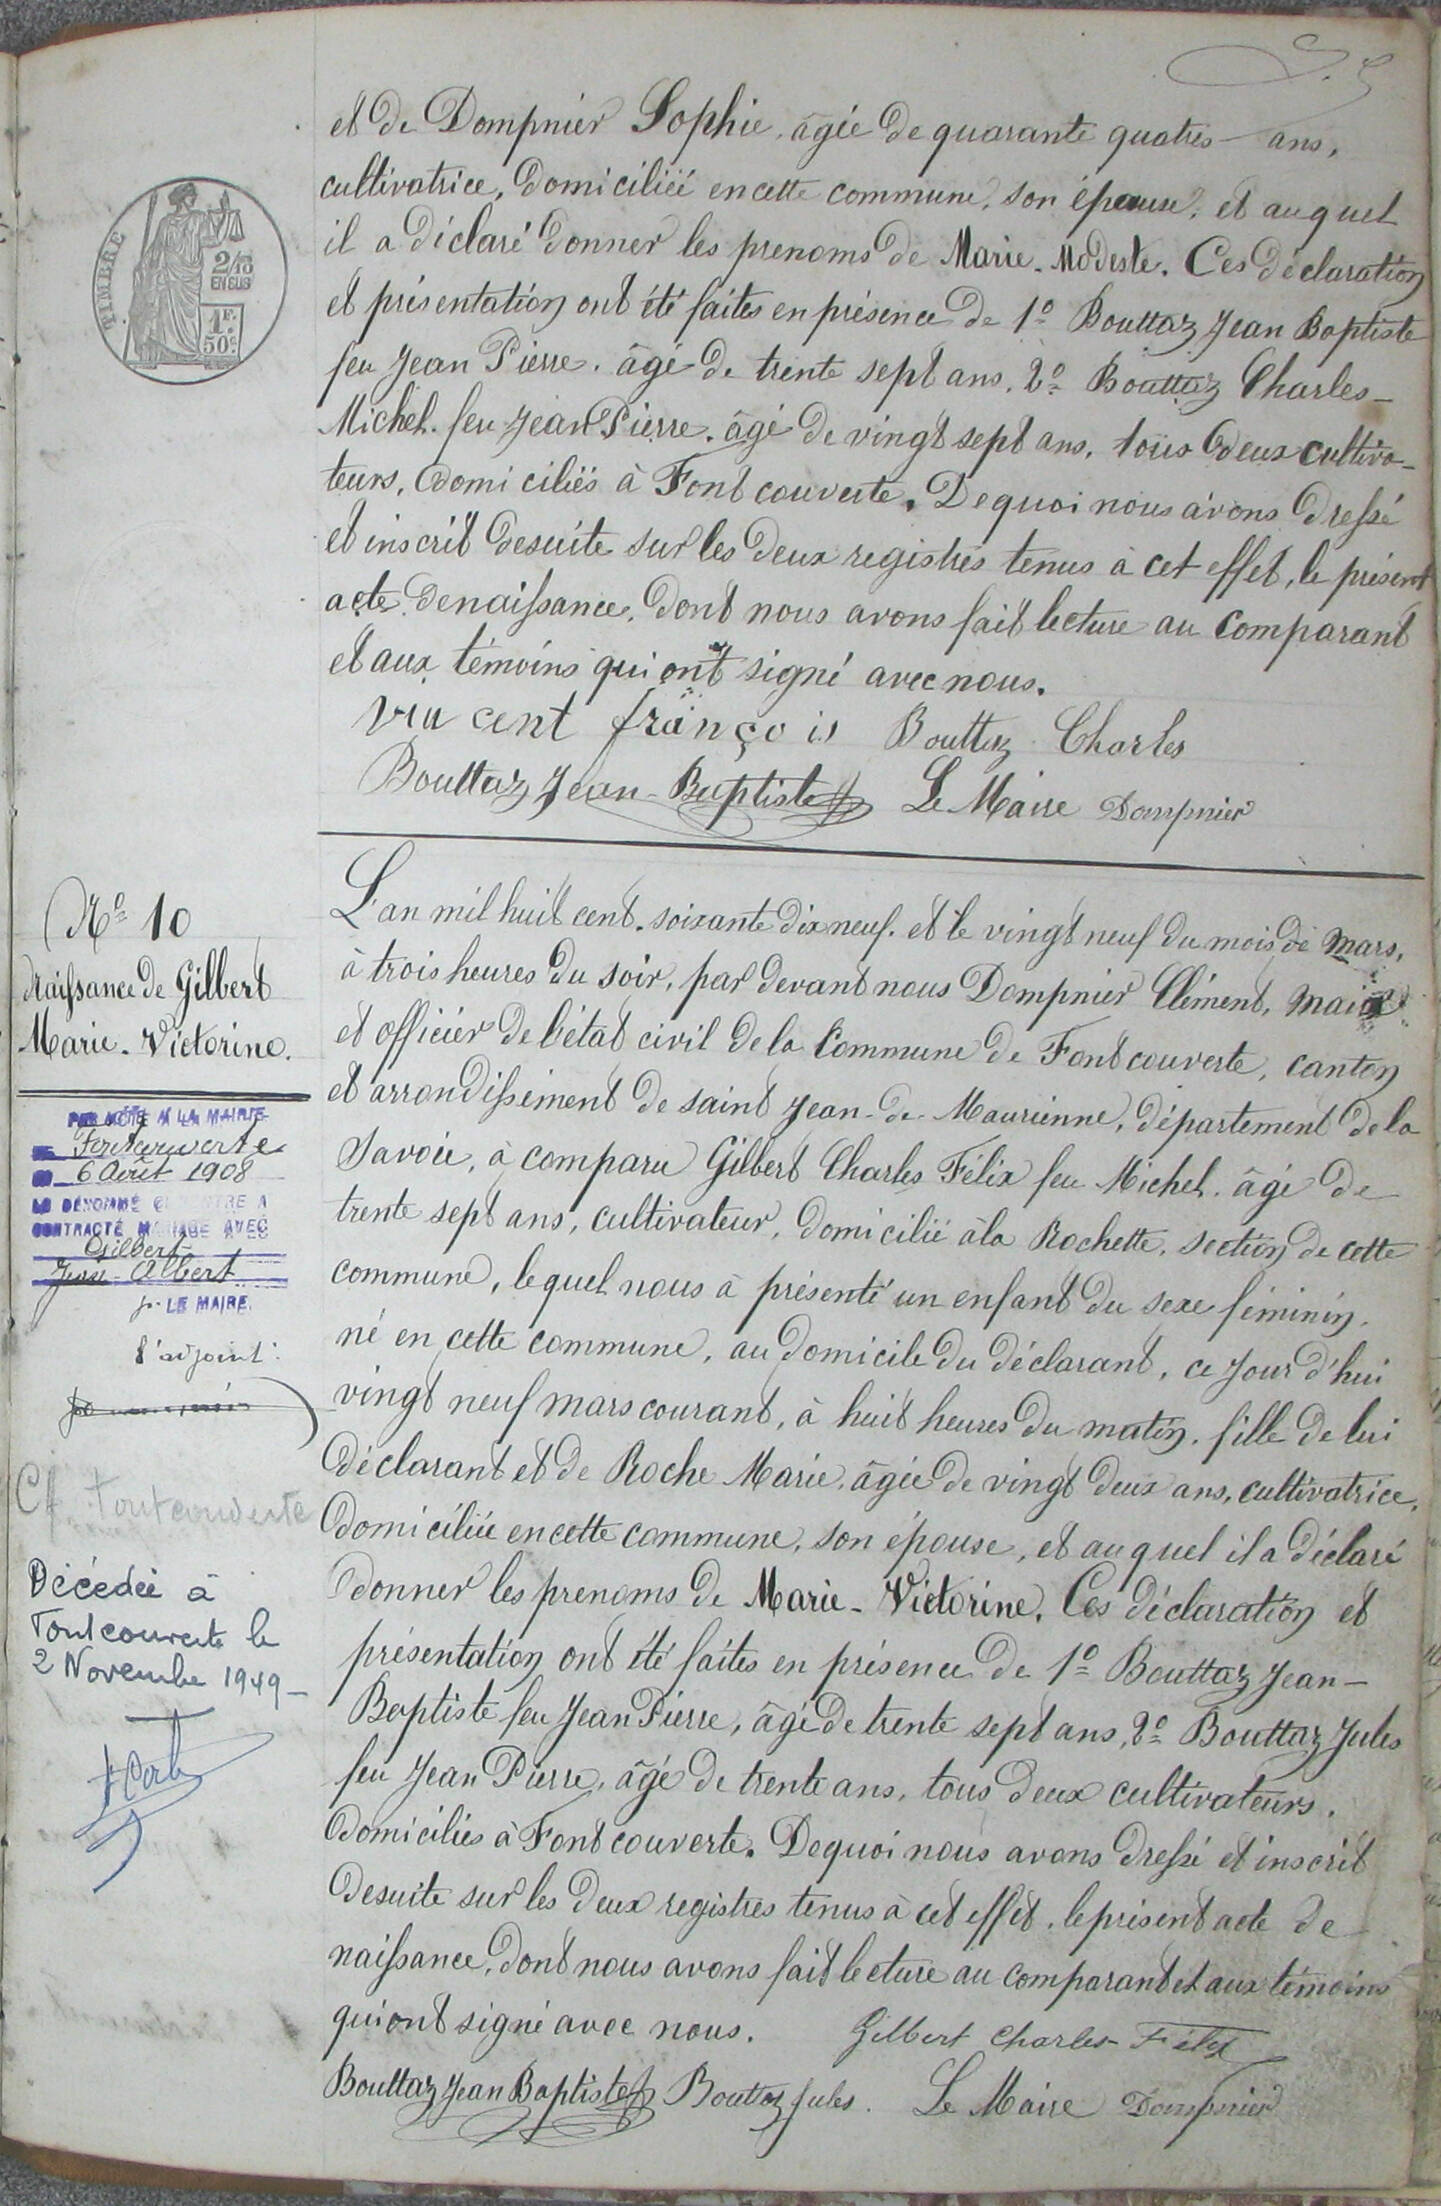 et de Dompnier Sophie, âgée de quarante quatres ans,
cultivatrice, domiciliée en cette commune, son épouse, et auquel
il a déclaré donner les prenoms de Marie-Modeste. Ces déclaration
et présentation ont été faites en présence de 1º Bouttaz Jean Baptiste
feu Jean Pierre. âgé de trente sept ans. 2º Bouttaz Charles-
Michel. feu Jean Pierre. âgé de vingt sept ans, tous deux cultiva-
teurs, domiciliés à Fontcouverte. De quoi nous avons dressé
et inscrit desuite sur les deux registres tenus à cet effet, le présent
acte de naissance, dont nous avons fait lecture au comparant
et aux témoins qui ont signé avec nous.
vin cent franço is Bouttaz Charles
Bouttaz Jean-Baptiste Le Maire Dompnier
TIMBRE
2/10
EN SUS
1F.
50c.
Nº 10
Naissance de Gilbert
Marie-Victorine.
PAR ACTE A LA MAIRIE
Fontcouverte
6 Août 1908
LE DÉNOMMÉ CI-CONTRE A
CONTRACTÉ MARIAGE AVEC
Gilbert
Jean-Albert
pr LE MAIRE.
l'adjoint
Cf. Fontcouverte
Décédée à
Fontcouverte le
2 Novembre 1949-
L'an mil huit cent. soixante dix neuf. et le vingt neuf du mois de mars,
à trois heures du soir, par devant nous Dompnier Clément, maire
et officier de l'état civil de la Commune de Fontcouverte, canton
et arrondissement de saint Jean-de-Maurienne, département de la
Savoie, à comparu Gilbert Charles Félix feu Michel. âgé de
trente sept ans, cultivateur, domicilié à la Rochette, section de cette
commune, lequel nous à présenté un enfant du sexe féminin,
né en cette commune, au domicile du déclarant, ce jour d'hui
vingt neuf mars courant, à huit heures du matin, fille de lui
déclarant et de Roche Marie, âgée de vingt deux ans, cultivatrice,
domiciliée en cette commune, son épouse, et auquel il a déclaré
donner les prenoms de Marie-Victorine. Ces déclaration et
présentation ont été faites en présence de 1º Bouttaz Jean-
Baptiste feu Jean Pierre, âgé de trente sept ans, 2º Bouttaz Jules
feu Jean Pierre, âgé de trente ans, tous deux cultivateurs,
domiciliés à Fontcouverte. De quoi nous avons dressé et inscrit
desuite sur les deux registres tenus à cet effet, le présent acte de
naissance, dont nous avons fait lecture au comparant et aux témoins
qui ont signé avec nous. Gilbert Charles-Félix
Bouttaz Jean Baptiste Bouttaz Jules. Le Maire Dompnier